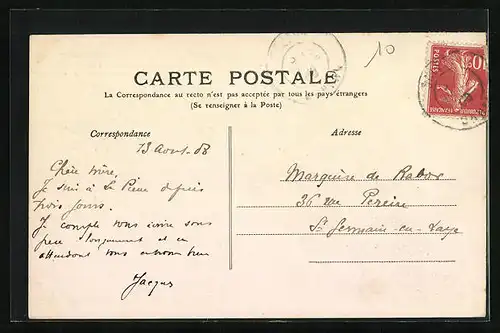 10
CARTE POSTALE
La Correspondance au recto n'est pas acceptée par tous les pays étrangers
(Se renseigner à la Poste)
Correspondance
Adresse
13 Aout 08
Chère
Je suis à St Pierre depuis
trois jours.
Je compte vous écrire sous
peu longuement et en
attendant vous
Jacques
Marquise de
36 rue Pereire
St Germain-en-Laye
10
POSTES